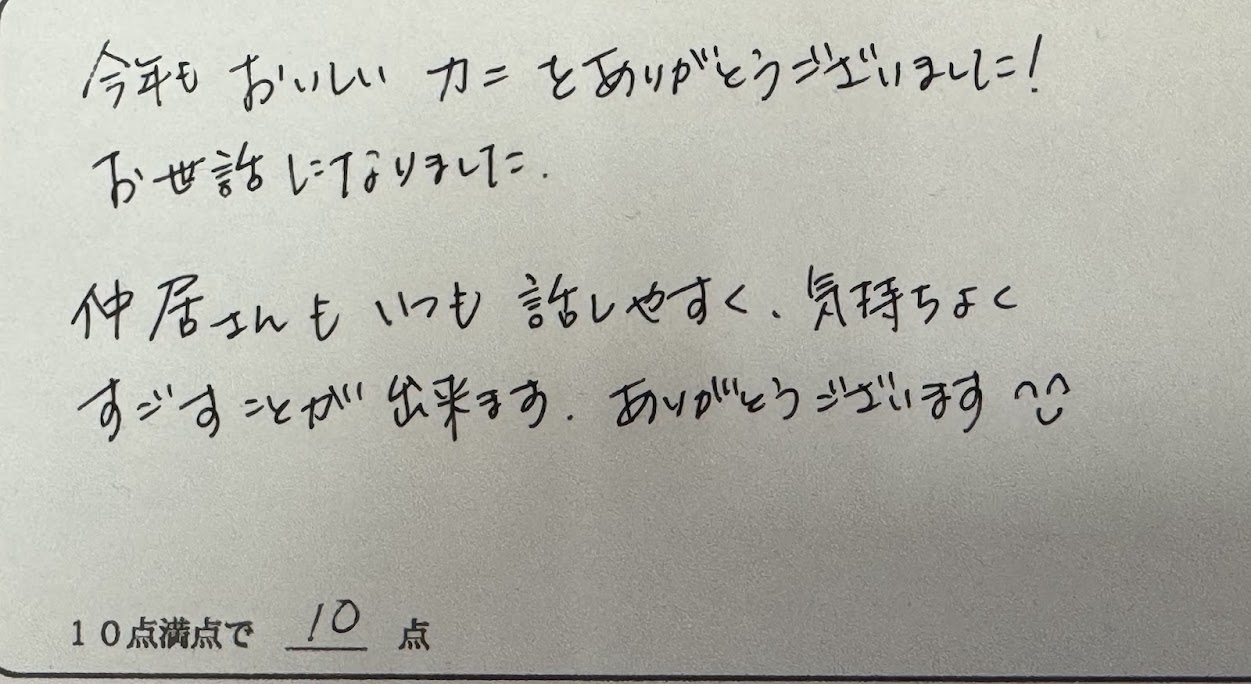 今年も おいしい カニ をありがとうございました!
お世話になりました.
仲居さんも いつも 話しやすく、気持ちよく
すごすことが出来ます. ありがとうございます ^^
10点満点で 10 点